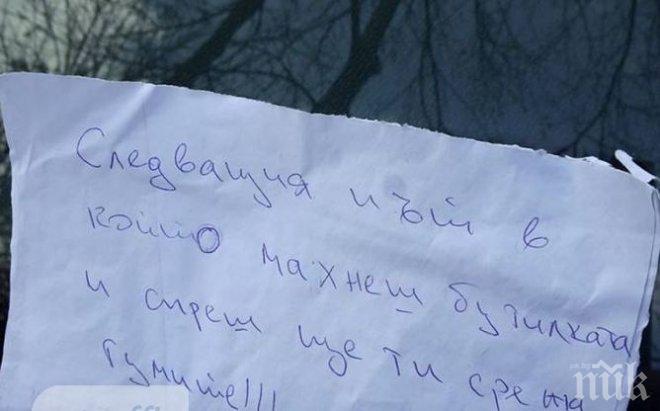 Следващия път в
който махнеш бутилката
и спреш ще ти срежа
гумите!!!
пик